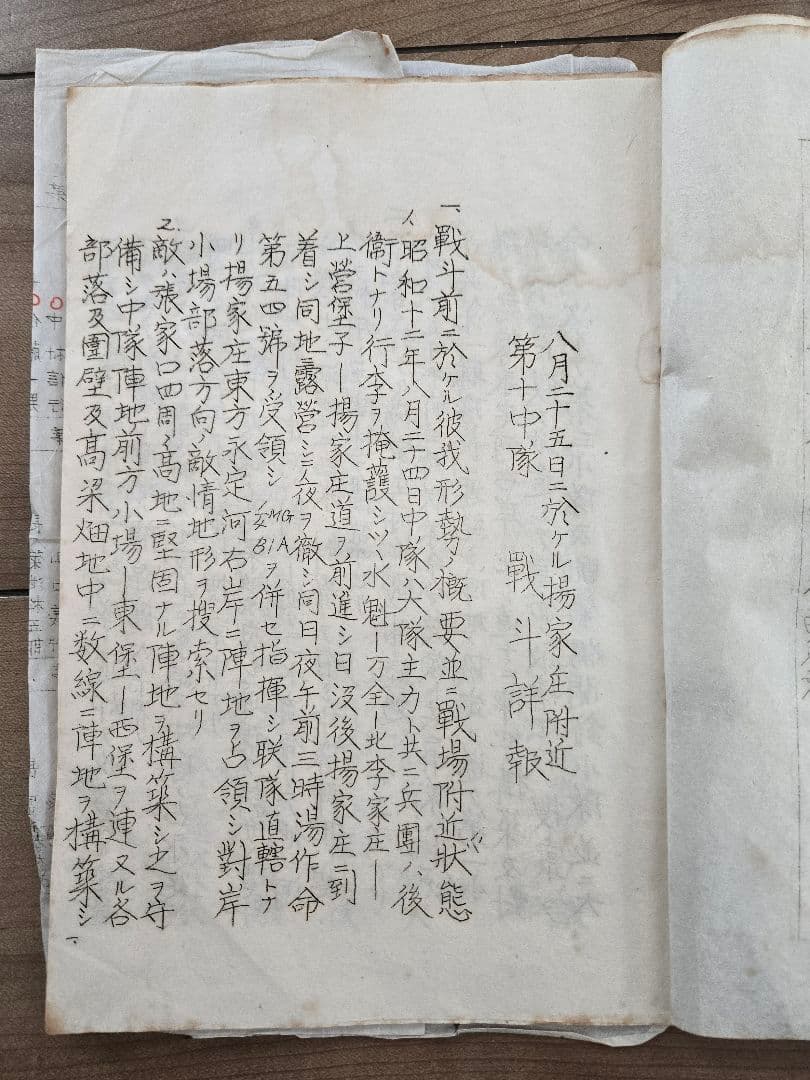 八月二十五日ニ於ケル揚家庄附近
第十中隊　戰斗詳報
一、戰斗前ニ於ケル彼我形勢ノ概要並ニ戰場附近ノ狀態
1、昭和十二年八月二十四日中隊ハ大隊主力ト共ニ兵團ノ後
衞トナリ行李ヲ掩護シツヽ水魁ー万全ー北李家庄ー
上營堡子ー揚家庄道ヲ前進シ日沒後揚家庄ニ到
着シ同地ニ露營シ一夜ヲ徹シ同日夜午前三時湯作命
第五四號ヲ受領シ MG BiAヲ併セ指揮シ联隊直轄トナ
リ揚家庄東方永定河右岸ニ陣地ヲ占領シ對岸
小場部落方向ノ敵情地形ヲ搜索セリ
2.敵ハ張家口四周ノ高地ニ堅固ナル陣地ヲ構築シ之ヲ守
備シ中隊陣地前方小場ー東堡ー西堡ヲ連ヌル各
部落及圍壁及高梁畑地中ニ数線ニ陣地ヲ構築シ、